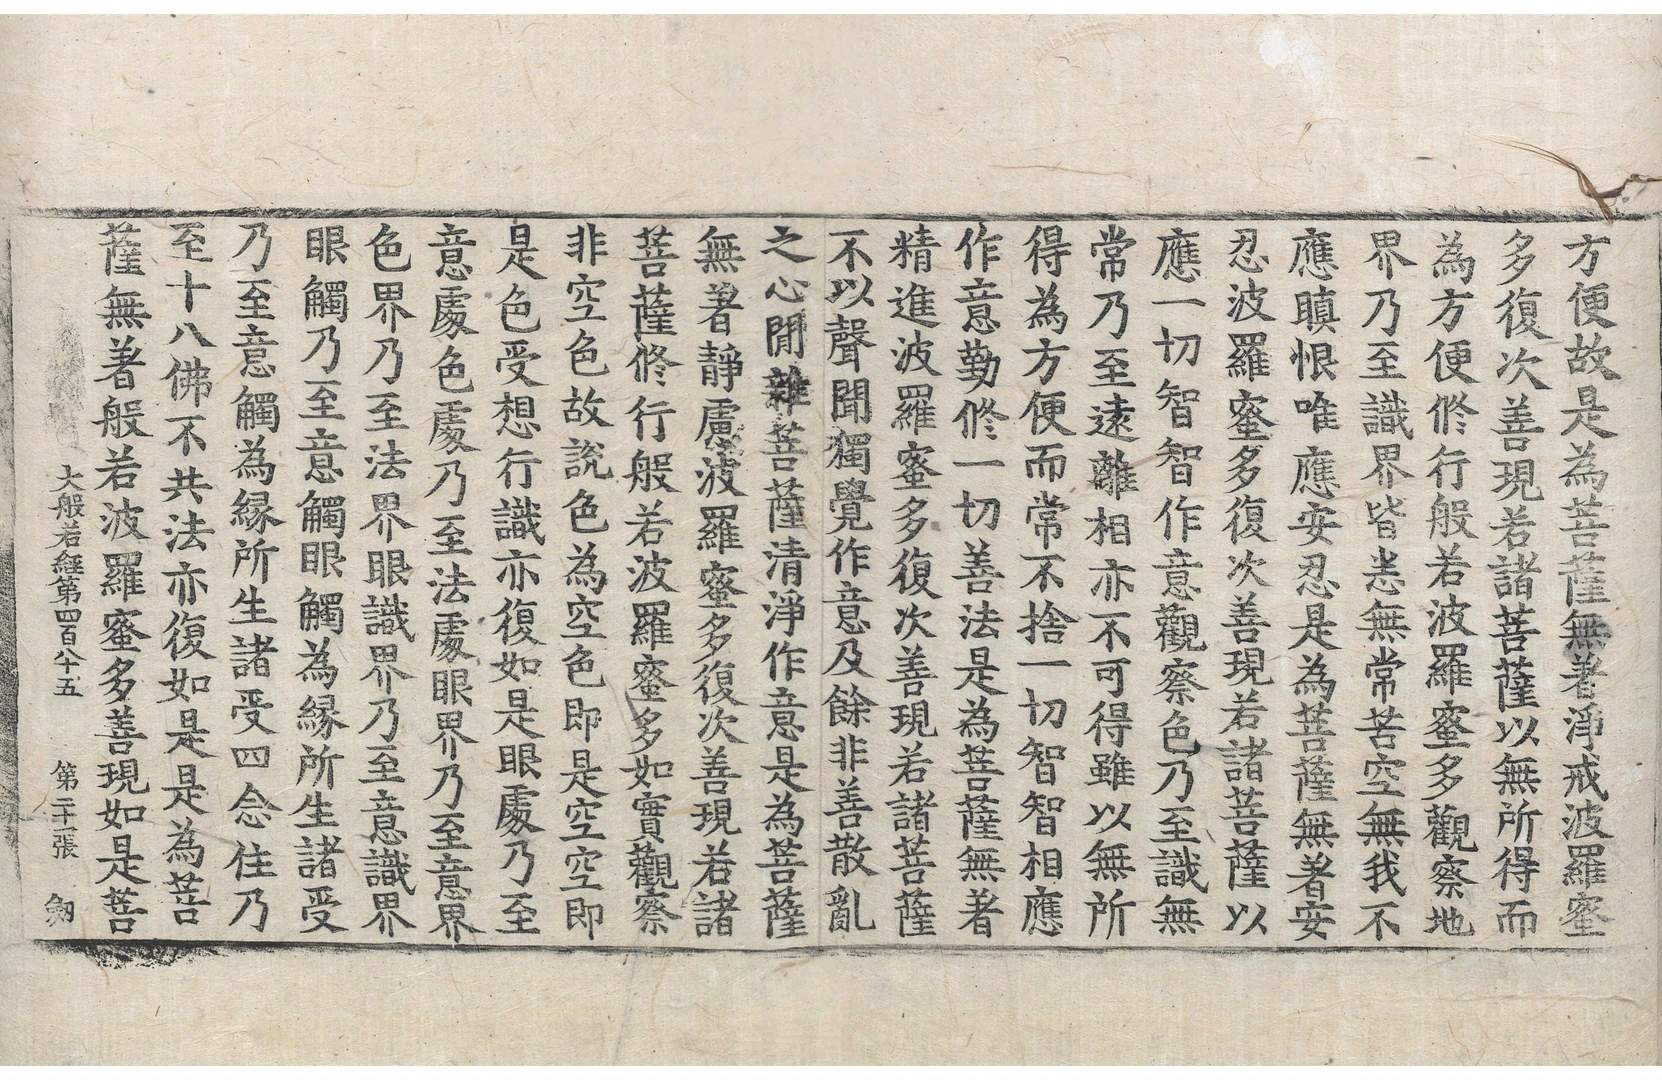 方便故是為菩薩無著淨戒波羅蜜
多復次善現若諸菩薩以無所得而
為方便修行般若波羅蜜多觀察地
界乃至識界皆悉無常苦空無我不
應瞋恨唯應安忍是為菩薩無著安
忍波羅蜜多復次善現若諸菩薩以
應一切智智作意觀察色乃至識無
常乃至遠離相亦不可得雖以無所
得為方便而常不捨一切智智相應
作意勤修一切善法是為菩薩無著
精進波羅蜜多復次善現若諸菩薩
不以聲聞獨覺作意及餘非善散亂
之心閒雜菩薩清淨作意是為菩薩
無著靜慮波羅蜜多復次善現若諸
菩薩修行般若波羅蜜多如實觀察
非空色故說色為空色即是空空即
是色受想行識亦復如是眼處乃至
意處色處乃至法處眼界乃至意界
色界乃至法界眼識界乃至意識界
眼觸乃至意觸眼觸為緣所生諸受
乃至意觸為緣所生諸受四念住乃
至十八佛不共法亦復如是是為菩
薩無著般若波羅蜜多善現如是菩
大般若經第四百八十五　第二十一張　劒